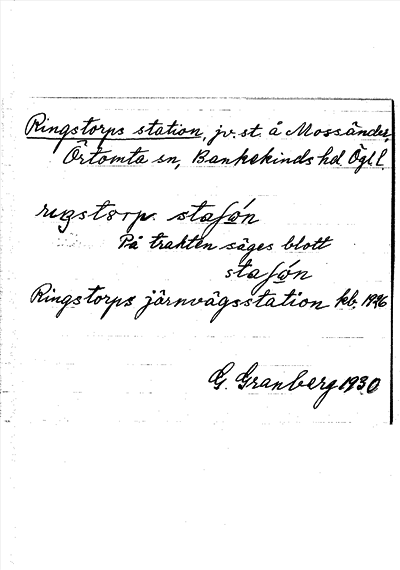 Ringstorps station, jv. st. å Mossänder,
Örtomta sn, Bankekinds hd Ögl.
station
På trakten säges blott
Ringstorps järnvägsstation kb. 1926
G. Granberg 1930